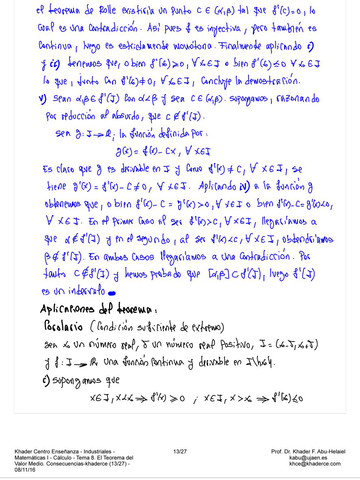 el teorema de Rolle existiría un punto c ∈ (α,β) tal que f'(c)=0, lo
cual es una contradicción. Así pues f es inyectiva, pero también es
continua, luego es estrictamente monótona. Finalmente aplicando
y tenemos que, o bien f'(x)≥0, ∀x∈I o bien f'(x)≤0 ∀x∈I
lo que, junto con f'(x)≠0, ∀x∈I, concluye la demostración.
v) Sean α,β∈f'(I) con α<β y sea c∈(α,β). Supongamos, razonando
por reducción al absurdo, que c∉f'(I).
Sea g: I→ℝ, la función definida por:
g(x)=f(x)-cx, ∀x∈I
Es claro que g es derivable en I y como f'(x)≠c, ∀x∈I, se
tiene g'(x)=f'(x)-c≠0, ∀x∈I. Aplicando iv) a la función g
obtenemos que, o bien f'(x)-c=g'(x)>0, ∀x∈I o bien f'(x)-c=g'(x)<0,
∀x∈I. En el primer caso al ser f'(x)>c, ∀x∈I, llegaríamos a
que α∉f'(I) y en el segundo, al ser f'(x)<c, ∀x∈I, obtendríamos
β∉f'(I). En ambos casos llegaríamos a una contradicción. Por
tanto c∈f'(I) y hemos probado que [α,β]⊂f'(I), luego f'(I)
es un intervalo
Aplicaciones del teorema:
Corolario (Condición suficiente de extremo)
Sea un número real, un número real positivo,
y f: I→ℝ una función continua y derivable en
Supongamos que
x∈I, ⇒ f'(x)≥0 ; x∈I, ⇒ f'(x)≤0
Khader Centro Enseñanza - Industriales -
Matemáticas I - Cálculo - Tema 8. El Teorema del
Valor Medio. Consecuencias-khaderce (13/27) -
08/11/16
13/27
Prof. Dr. Khader F. Abu-Helaiel
kabu@ujaen.es
khce@khaderce.com